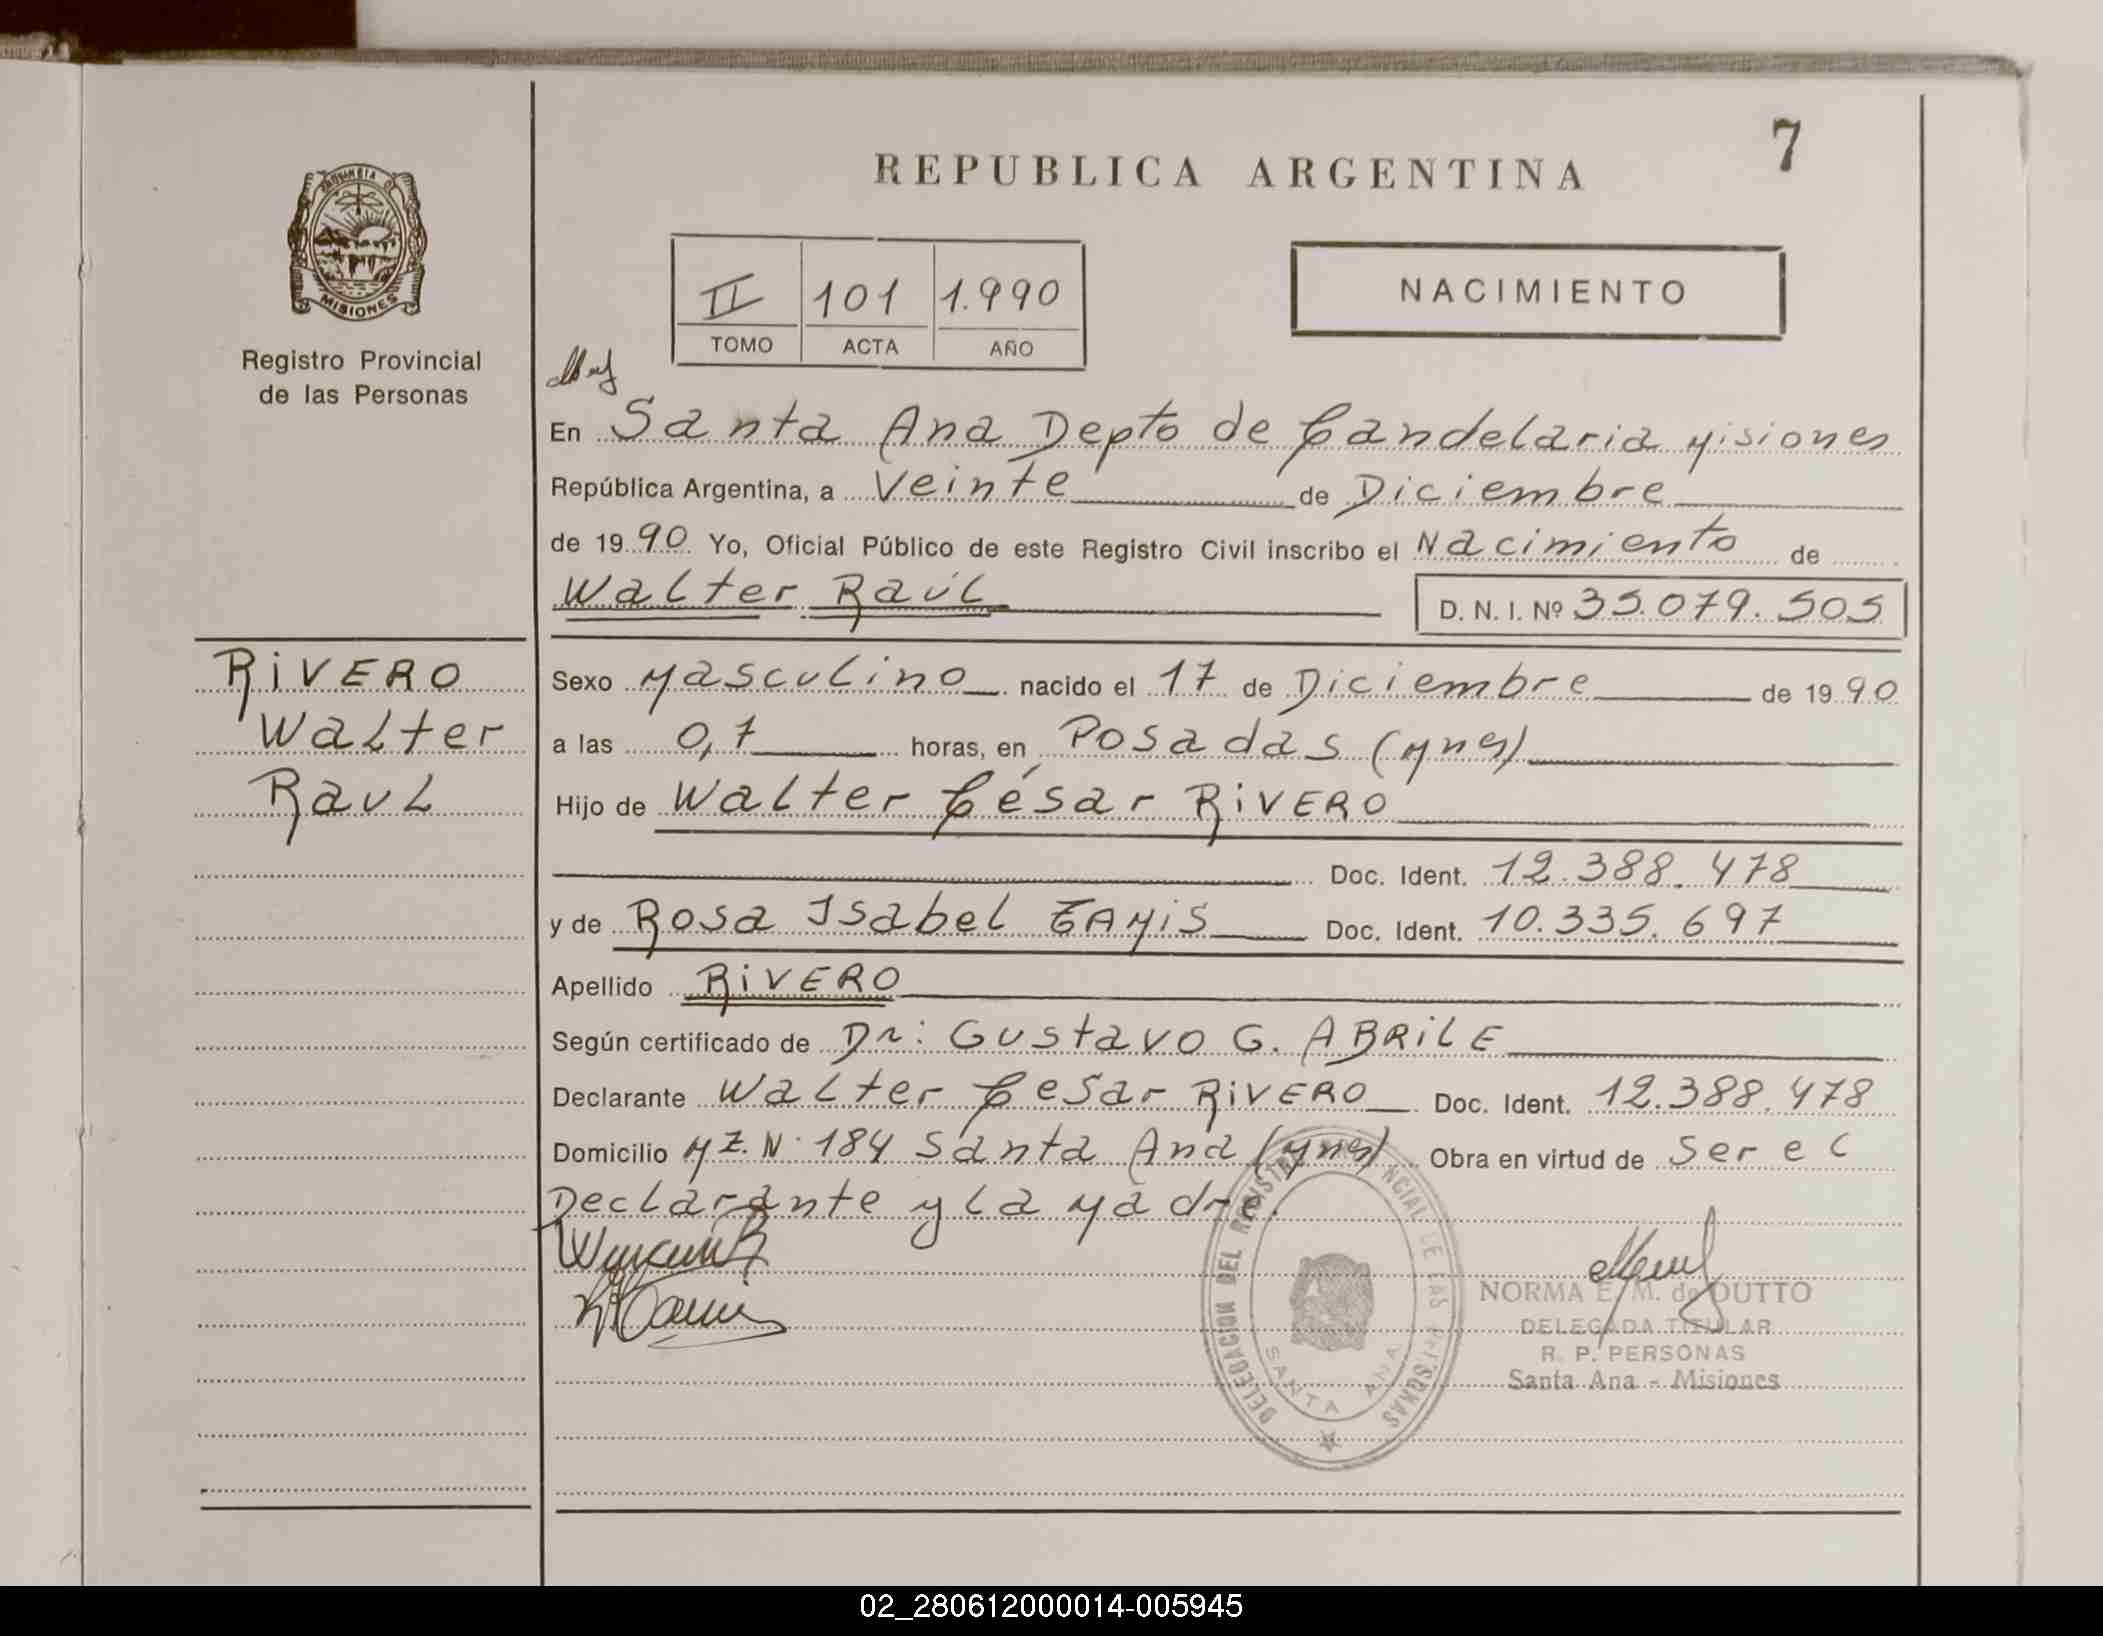 7
REPUBLICA ARGENTINA
PROVINCIA D
MISIONES
Registro Provincial
de las Personas
II 101 1.990
TOMO ACTA AÑO
NACIMIENTO
En Santa Ana Depto de Candelaria Misiones
República Argentina, a Veinte de Diciembre
de 19 90 Yo, Oficial Público de este Registro Civil inscribo el Nacimiento de
Walter Raúl D. N. I. Nº 35.079.505
RIVERO
Walter
Raul
Sexo Masculino nacido el 17 de Diciembre de 19 90
a las 0,7 horas, en Posadas (Mnes)
Hijo de Walter César RIVERO
Doc. Ident. 12.388.478
y de Rosa Isabel Doc. Ident. 10.335.697
Apellido RIVERO
Según certificado de Dr: Gustavo G. ABRILE
Declarante Walter Cesar RIVERO Doc. Ident. 12.388.478
Domicilio MZ. N· 184 Santa Ana (Mnes) Obra en virtud de ser el
Declarante y la Madre.
DELEGACION DEL REGISTRO NCIAL DE LAS PERSONAS
SANTA ANA
NORMA E. M. de DUTTO
DELEGADA TITULAR
R. P. PERSONAS
Santa Ana - Misiones
02_280612000014-005945